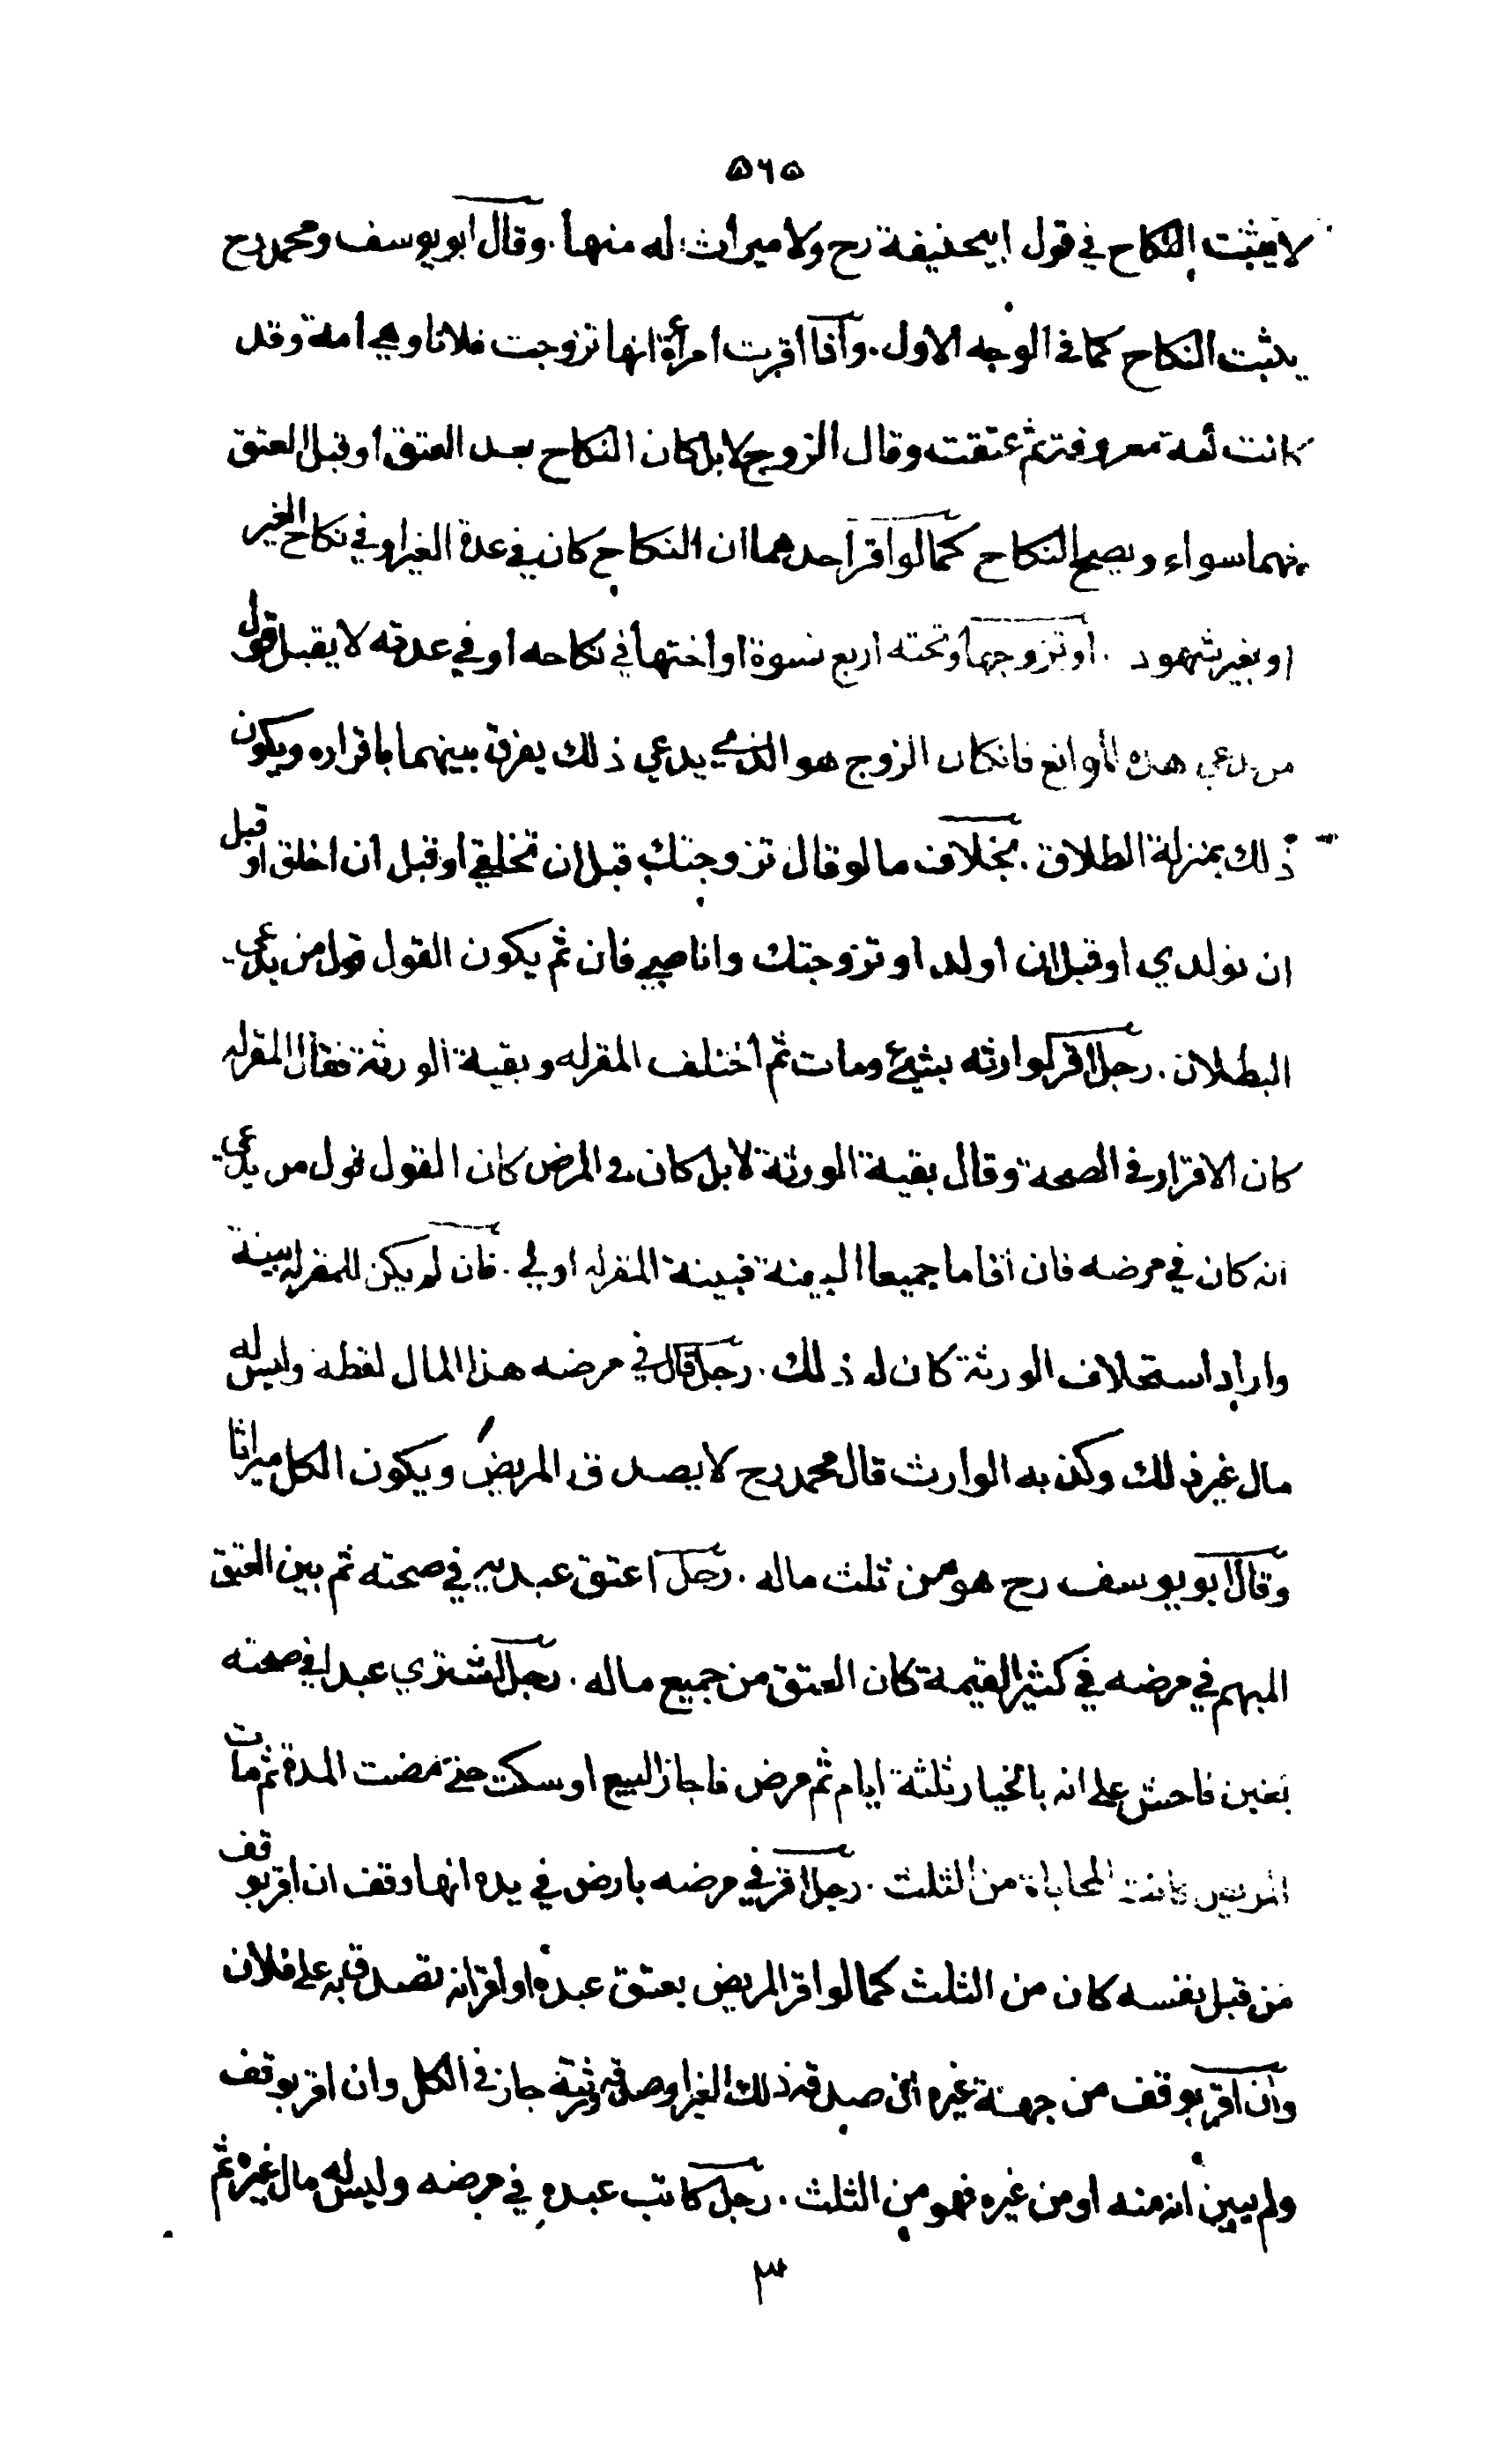 ٥٦٥
لا يثبت النكاح في قول ابيحنيفة رح ولا ميراث له منها . وقال ابويوسف ومحمد رح
يثبت النكاح كما في الوجه الاول . واذا اقرت امرأة انها تزوجت فلانا وهي امة وقد
كانت أمة معروفة ثم عتقت وقال الزوج لا بل كان النكاح بعد العتق او قبل العتق
فهما سواء ويصح النكاح كما لو اقر احدهما ان النكاح كان في عدة الغير او في نكاح الغير
او بغير شهود . او تزوجها وتحته اربع نسوة او اختها في نكاحه او في عدته لا يقبل قول
من يدعي هذه الموانع فانكان الزوج هو الذي يدعي ذلك يفرق بينهما باقراره ويكون
ذلك بمنزلة الطلاق . بخلاف ما لو قال تزوجتك قبل ان تخلقي او قبل ان اخلق او قبل
ان تولدي او قبل ان اولد او تزوجتك وانا صبي فان ثم يكون القول قول من يدعي
البطلان . رجل اقر لوارثه بشيء ومات ثم اختلف المقرله وبقية الورثة فقال المقرله
كان الاقرار في الصحة وقال بقية الورثة لا بل كان في المرض كان القول قول من يدعي
انه كان في مرضه فان اقاما جميعا البينة فبينة المقرله اولى . فان لم يكن للمقرله بينة
واراد استحلاف الورثة كان له ذلك . رجل قال في مرضه هذا المال لقطة وليس له
مال غير ذلك وكذبه الوارث قال محمد رح لا يصدق المريض ويكون الكل ميراثا
وقال ابويوسف رح هو من ثلث ماله . رجل اعتق عبديه في صحته ثم بين العتق
المبهم في مرضه في كثير القيمة كان العتق من جميع ماله . رجل اشترى عبدا في صحته
بغبن فاحش على انه بالخيار ثلثة ايام ثم مرض فاجاز البيع او سكت حتى مضت المدة ثم مات
المريض كانت المحاباة من الثلث . رجل اقر في مرضه بارض في يده انها وقف ان اقر بوقف
من قبل نفسه كان من الثلث كما لو اقر المريض بعتق عبده او اقر انه تصدق به على فلان
وان اقر بوقف من جهة غيره ان صدقه ذلك الغير او صدقه ورثته جاز في الكل وان اقر بوقف
ولم يبين انه منه او من غيره فهو من الثلث . رجل كاتب عبده في مرضه وليس له مال غيره ثم
٣